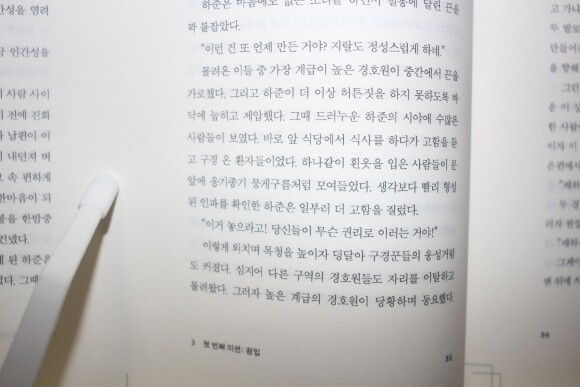 간성을 염려
인간성을
사람 사이
전에 진화
남편이 이
내던져 버
속 편하게
한마음이 되
불을 한밤중
건넸다.
된 하준은
았다. 그때
꽉 붙잡았다.
“이런 건 또 언제 만든 거야? 지랄도 정성스럽게 하네.”
몰려온 이들 중 가장 계급이 높은 경호원이 중간에서 끈을
가로챘다. 그리고 하준이 더 이상 허튼짓을 하지 못하도록 바
닥에 눕히고 제압했다. 그때 드러누운 하준의 시야에 수많은
사람들이 보였다. 바로 앞 식당에서 식사를 하다가 고함을 듣
고 구경 온 환자들이었다. 하나같이 흰옷을 입은 사람들이 문
앞에 옹기종기 뭉게구름처럼 모여들었다. 생각보다 빨리 형성
된 인파를 확인한 하준은 일부러 더 고함을 질렀다.
“이거 놓으라고! 당신들이 무슨 권리로 이러는 거야!”
이렇게 외치며 목청을 높이자 덩달아 구경꾼들의 웅성거림
도 커졌다. 심지어 다른 구역의 경호원들도 자리를 이탈하고
몰려왔다. 그러자 높은 계급의 경호원이 당황하며 동요했다.
3 첫 번째 미션: 잠입